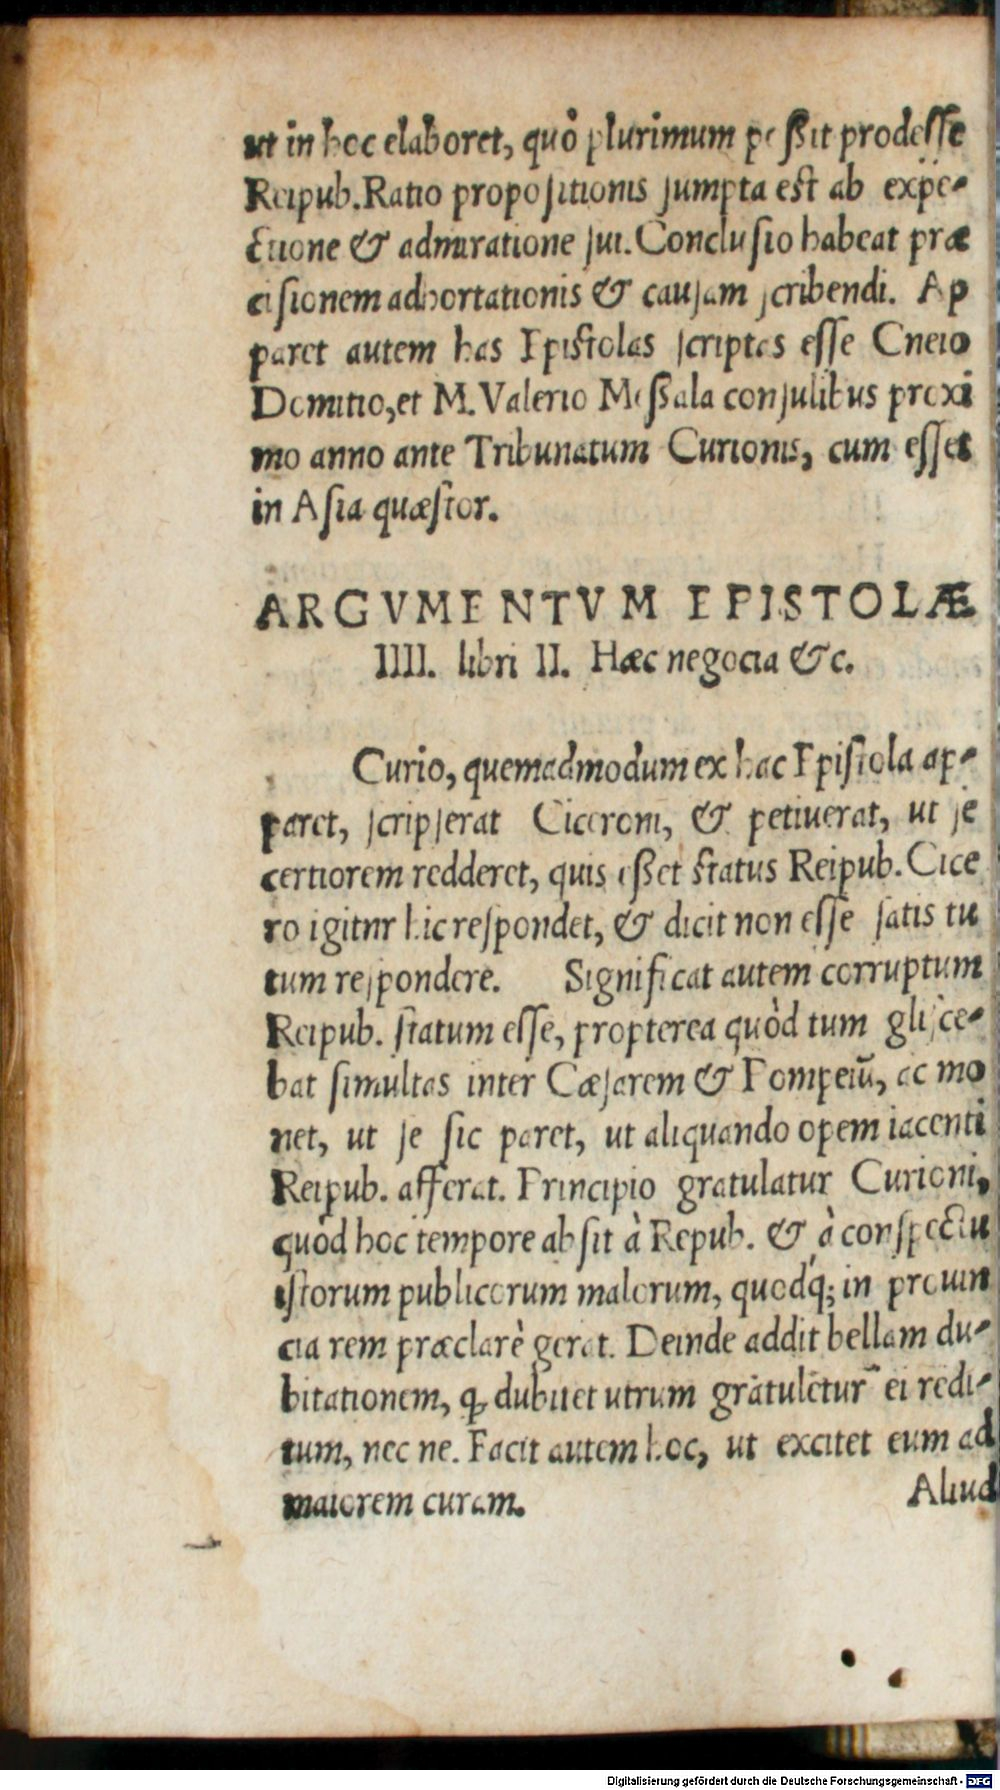 ut in hoc elaboret, quò plurimum poßit prodeſſe
Reipub. Ratio propoſitionis ſumpta est ab expe-
ctione & admiratione ſui. Concluſio habeat præ
ciſionem adhortationis & cauſam ſcribendi. Ap
paret autem has Epiſtolas ſcriptas eſſe Cneio
Domitio, et M. Valerio Meßala conſulibus proxi
mo anno ante Tribunatum Curionis, cum eſſet
in Aſia quæſtor.
ARGVMENTVM EPISTOLÆ
IIII. libri II. Hæc negocia &c.
Curio, quemadmodum ex hac Epiſtola ap-
paret, ſcripſerat Ciceroni, & petiuerat, ut ſe
certiorem redderet, quis eßet ſtatus Reipub. Cice
ro igitnr hic reſpondet, & dicit non eſſe ſatis tu
tum reſpondere. Significat autem corruptum
Reipub. ſtatum eſſe, propterea quòd tum gliſce-
bat simultas inter Cæſarem & Pompeiũ, ac mo
net, ut ſe sic paret, ut aliquando opem iacenti
Reipub. afferat. Principio gratulatur Curioni,
quòd hoc tempore absit à Repub. & à conſpectu
iſtorum publicorum malorum, quodq́; in prouin
cia rem præclarè gerat. Deinde addit bellam du-
bitationem, ꝙ dubitet utrum gratuletur ei redi-
tum, nec ne. Facit autem hoc, ut excitet eum ad
maiorem curam.
Aliud
Digitalisierung gefördert durch die Deutsche Forschungsgemeinschaft - DFG